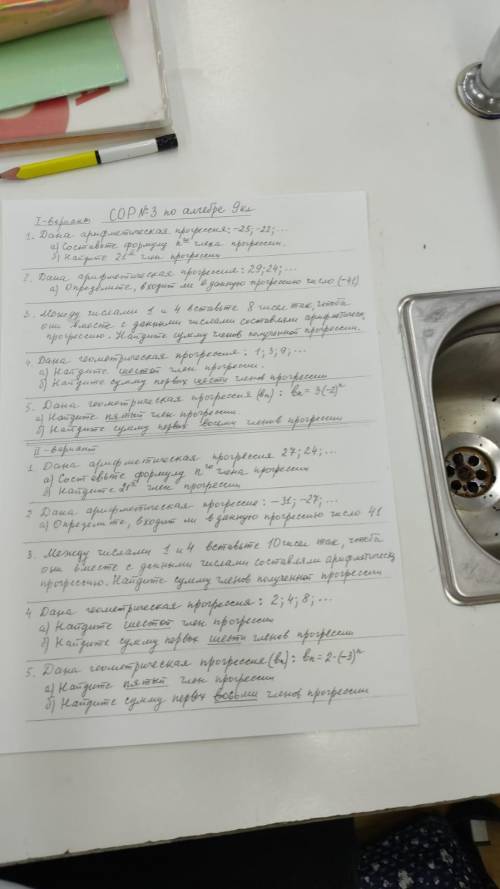 СОР №3 по алгебре 9 кл
I-вариант
1. Дана арифметическая прогрессия: -25; -22; ...
а) Составьте формулу nго члена прогрессии.
б) Найдите 21й член прогрессии
2. Дана арифметическая прогрессия: 29; 24; ...
а) Определите, входит ли в данную прогрессию число (-41)
3. Между числами 1 и 4 вставьте 8 чисел так, чтобы
они вместе с данными числами составляли арифметическ.
прогрессию. Найдите сумму членов полученной прогрессии.
4. Дана геометрическая прогрессия: 1; 3; 9; ...
а) Найдите шестой член прогрессии.
б) Найдите сумму первых шести членов прогрессии
5. Дана геометрическая прогрессия (bn): bn = 3(-2)ⁿ
а) Найдите пятый член прогрессии.
б) Найдите сумму первых восьми членов прогрессии
II-вариант
1. Дана арифметическая прогрессия 27; 24; ...
а) Составьте формулу nго члена прогрессии
б) Найдите 21й член прогрессии
2 Дана арифметическая прогрессия: -31; -27; ...
а) Определите, входит ли в данную прогрессию число 41
3. Между числами 1 и 4 вставьте 10 чисел так, чтобы
они вместе с данными числами составляли арифметическ
прогрессию. Найдите сумму членов полученной прогрессии
4 Дана геометрическая прогрессия: 2; 4; 8; ...
а) Найдите шестой член прогрессии
б) Найдите сумму первых шести членов прогрессии
5. Дана геометрическая прогрессия (bn): bn = 2·(-3)ⁿ
а) Найдите пятый член прогрессии
б) Найдите сумму первых восьми членов прогрессии